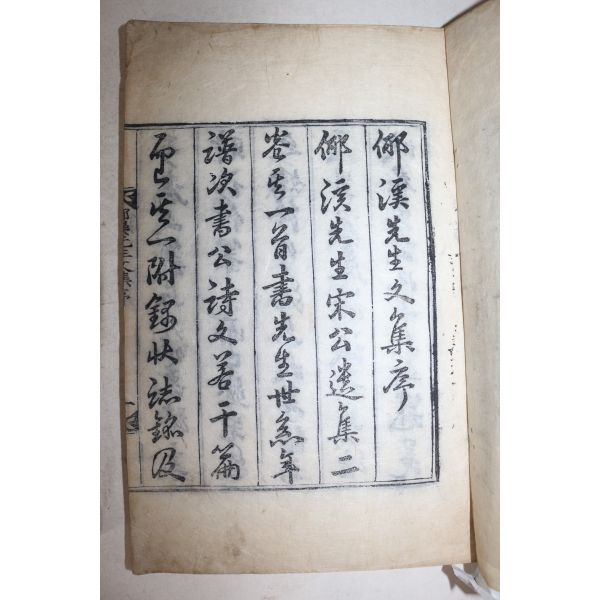 倻溪先生文集序
倻溪先生宋公遺集二
卷其一首書先生世系年
譜次書公詩文若干篇
而已其一附錄狀誌銘及